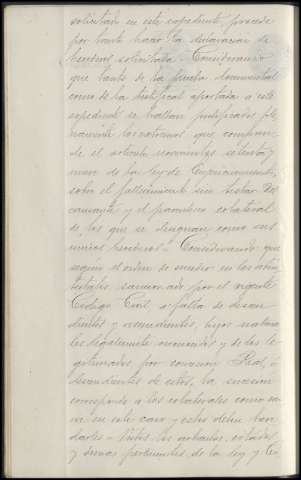 solicitada en este expediente procede
por tanto hacer la declaracion de
herederos solicitada. Considerando
que tanto de la prueba documental
como de la testifical aportada a este
expediente se hallan justificados ple
namente los extremos que comprende
el articulo novecientos ochenta y
uno de la ley de Enjuiciamiento,
sobre el fallecimiento sin testar del
causante y el parentesco colateral
de los que se designan como sus
unicos herederos = Considerando que
segun el orden de suceder en los abin
testatos sancionado por el vigente
Codigo Civil a falta de descen
dientes y ascendientes, hijos natura
les legalmente reconocidos y de los le
gitimados por concesion Real, o
descendientes de estos, la sucesion
corresponde a los colaterales como
en este caso y estos deben heredar
Vistos los articulos citados
y demas pertinentes de la ley y Co